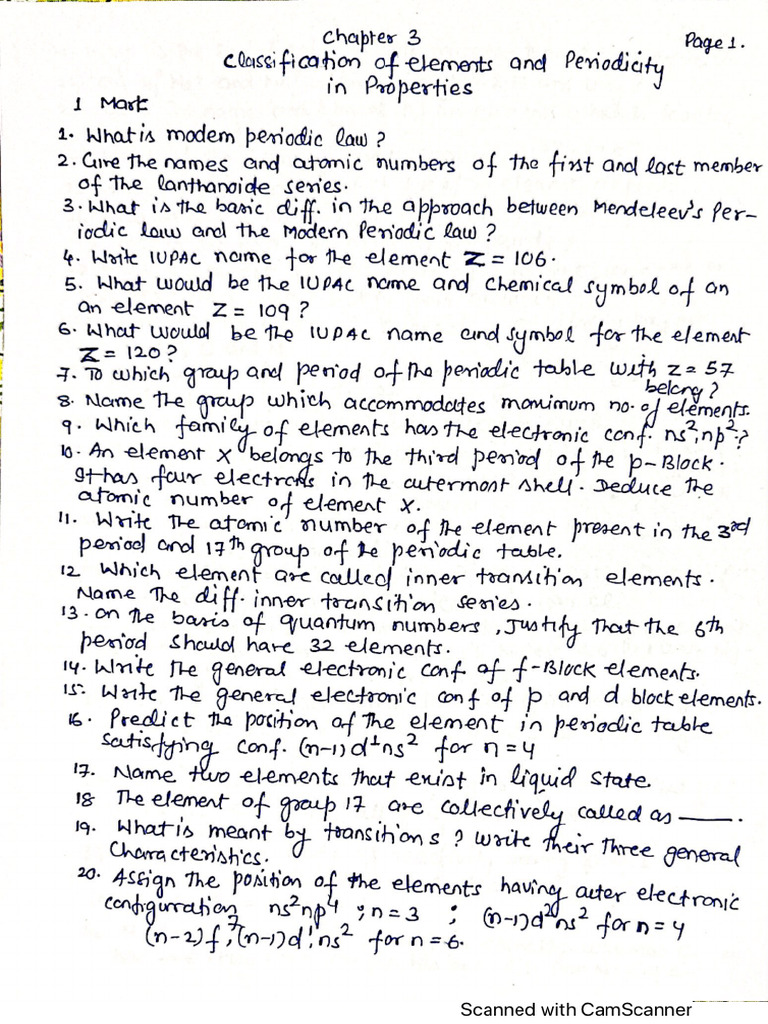 Chapter 3
Page 1.
Classification of elements and Periodicity
in Properties
1 Mark
1. What is modern periodic law?
2. Give the names and atomic numbers of the first and last member
of the lanthanoide series.
3. What is the basic diff. in the approach between Mendeleev's Per-
iodic law and the Modern Periodic law?
4. Write IUPAC name for the element Z = 106.
5. What would be the IUPAC name and chemical symbol of an
an element Z = 109?
6. What would be the IUPAC name and symbol for the element
Z = 120?
7. To which group and period of the periodic table with z = 57
belong?
8. Name the group which accommodates maximum no. of elements.
9. Which family of elements has the electronic conf. ns², np²?
10. An element X belongs to the third period of the p-Block.
It has four electrons in the outermost shell. Deduce the
atomic number of element X.
11. Write the atomic number of the element present in the 3rd
period and 17th group of the periodic table.
12 Which element are called inner transition elements.
Name the diff. inner transition series.
13. on the basis of quantum numbers, Justify that the 6th
period should have 32 elements.
14. Write the general electronic conf of f-Block elements.
15. Write the general electronic conf of p and d block elements.
16. Predict the position of the element in periodic table
satisfying conf. (n-1)d¹ns² for n = 4
17. Name two elements that exist in liquid state.
18 The element of group 17 are collectively called as ____.
19. What is meant by transition s? Write their three general
Characteristics.
20. Assign the position of the elements having outer electronic
configurration ns²np⁴; n = 3 ; (n-1)d²ns² for n = 4
(n-2)f⁷, (n-1)d¹ns² for n = 6.
Scanned with CamScanner